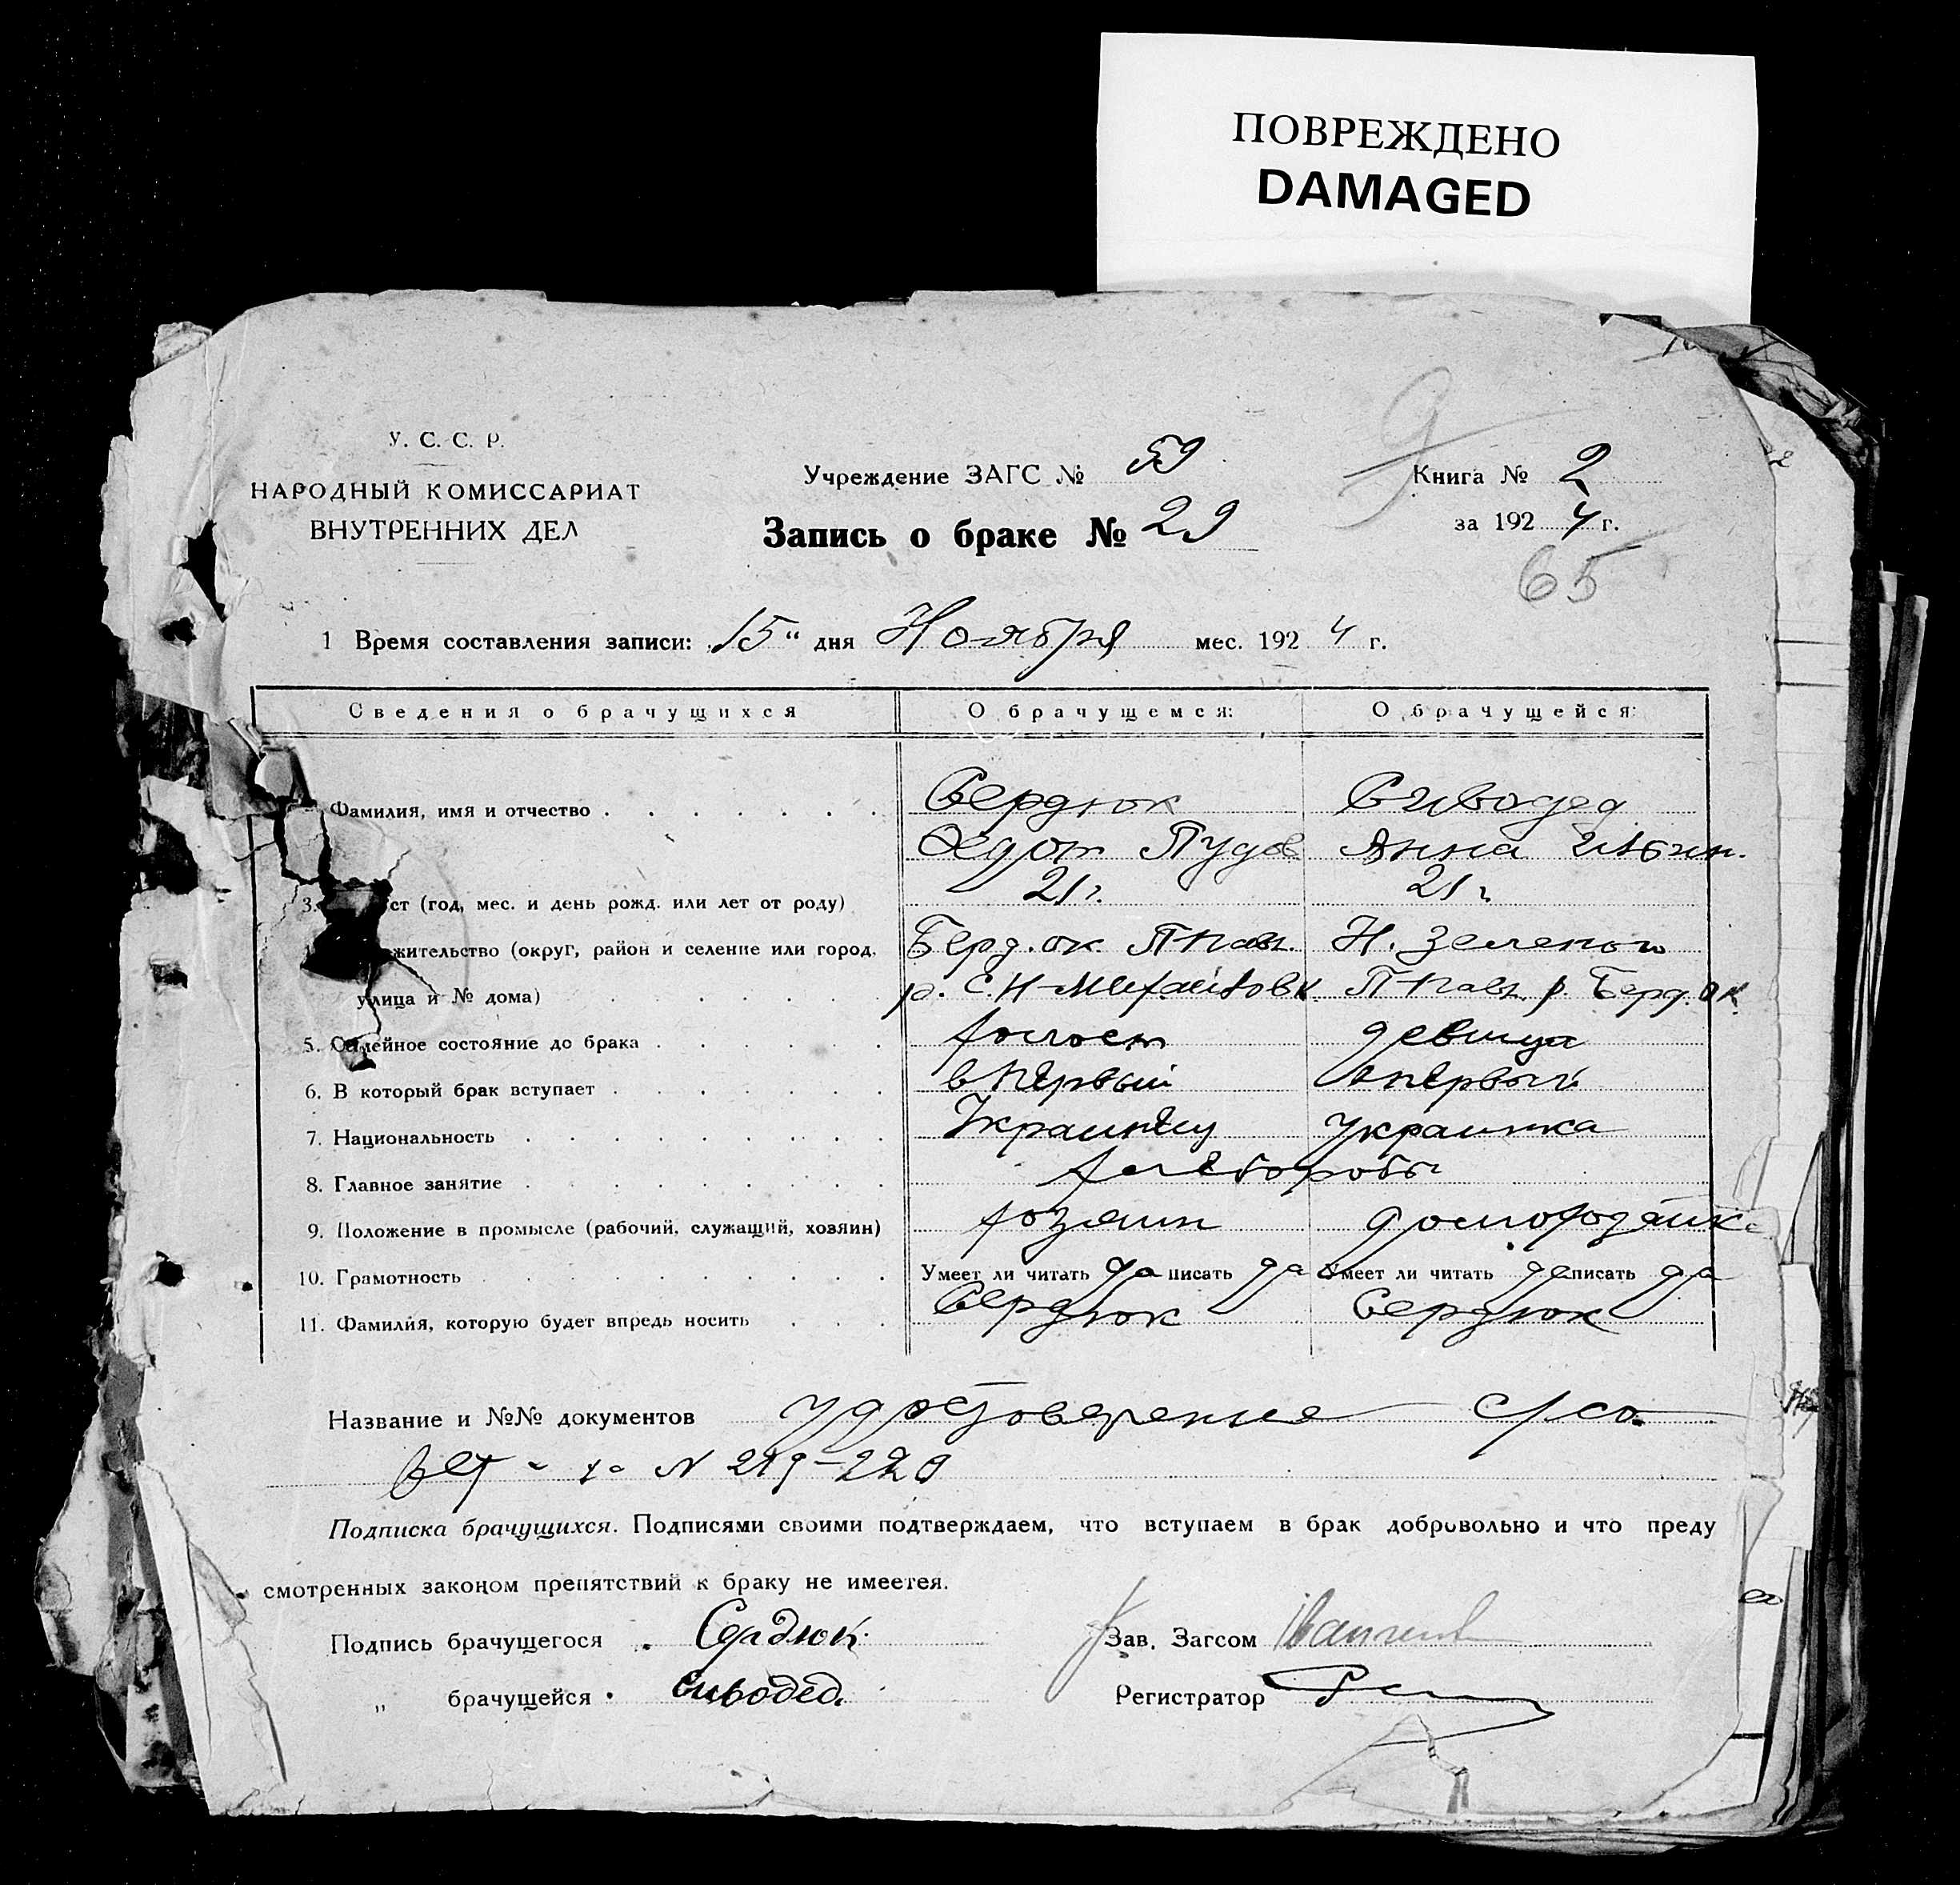 ПОВРЕЖДЕНО
DAMAGED
У. С. С. Р.
НАРОДНЫЙ КОМИССАРИАТ
ВНУТРЕННИХ ДЕЛ
Учреждение ЗАГС № 59
Запись о браке № 29
9
Книга № 2
за 1924 г.
65
1 Время составления записи: 15" дня Ноября мес. 1924 г.
Сведения о брачущихся О брачущемся: О брачущейся:
Фамилия, имя и отчество Сердюк Сиводед
Федот Пудов Анна Ильин.
3. ст (год, мес. и день рожд. или лет от роду) 21 г. 21 г.
жительство (округ, район и селение или город, Берд. ок. П Н. Зеленой
улица и № дома) р. С. Н-Михайловк р. Берд. ок.
5. Семейное состояние до брака холост девица
6. В который брак вступает в первый в первый
7. Национальность Украинец Украинка
8. Главное занятие хлеборобы
9. Положение в промысле (рабочий, служащий, хозяин) хозяин домохозяйка
10. Грамотность Умеет ли читать да писать да Умеет ли читать да писать да
11. Фамилия, которую будет впредь носить Сердюк Сердюк
Название и №№ документов удостоверение с/со.
N 219-220
Подписка брачущихся. Подписями своими подтверждаем, что вступаем в брак добровольно и что преду
смотренных законом препятствий к браку не имеется.
Подпись брачущегося Сердюк Зав. Загсом
„ брачущейся Сиводед. Регистратор